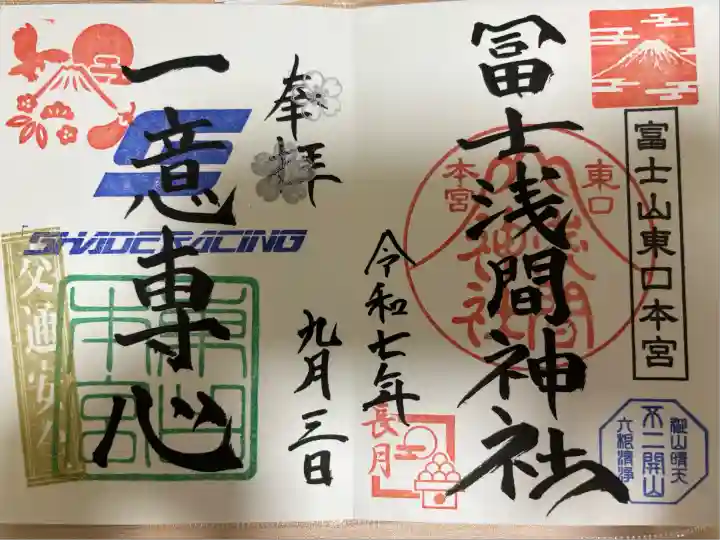 富士山東口本宮
冨士浅間神社
東口
本宮
浅間
神社
御山晴天
不二開山
六根清浄
長月
令和七年
九月三日
奉拝
一意専心
SHADE RACING
交通安全
東口
本宮